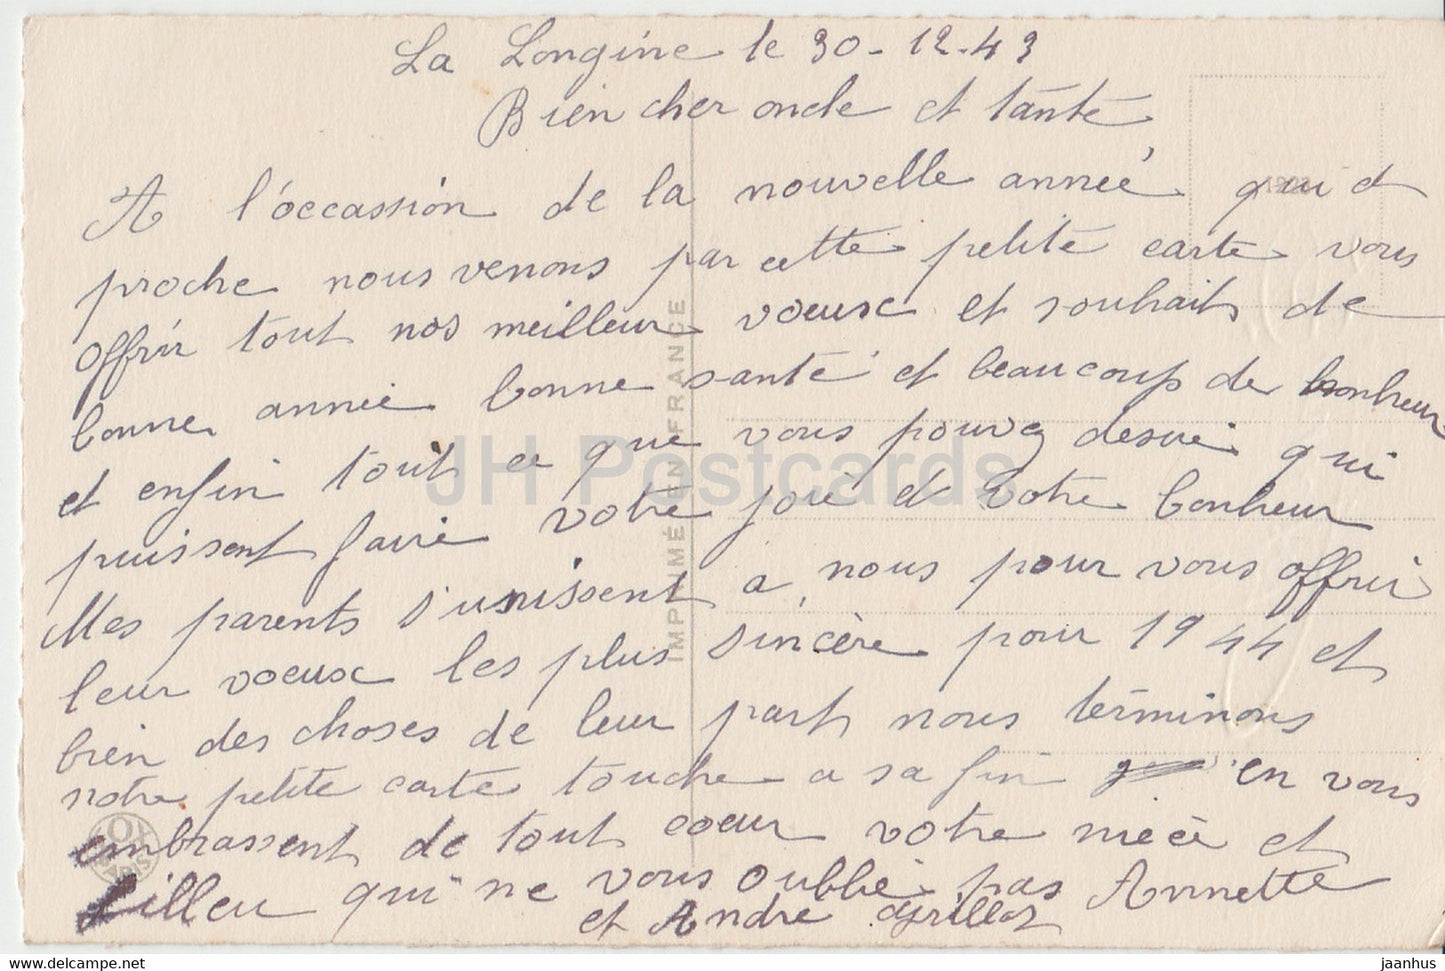 La Longine le 30-12-43
Bien cher oncle et tante
A l'occassion de la nouvelle année qui et
proche nous venons par cette petite carte vous
offrir tout nos meilleur voeux et souhait de
bonne année bonne santé et beaucoup de bonheur
et enfin tout ce que vous pouvez desirée qui
puissent faire votre joie et votre bonheur
Mes parents s'unissent a nous pour vous offrir
leur voeux les plus sincère pour 1944 et
bien des choses de leur part nous terminons
notre petite carte touche a sa fin en vous
embrassent de tout coeur votre niece et
filleu qui ne vous oublie pas Annette
et Andre Grillot
IMPRIMÉ EN FRANCE
PARIS
JH Postcards
hippostcard.com
jaanhus